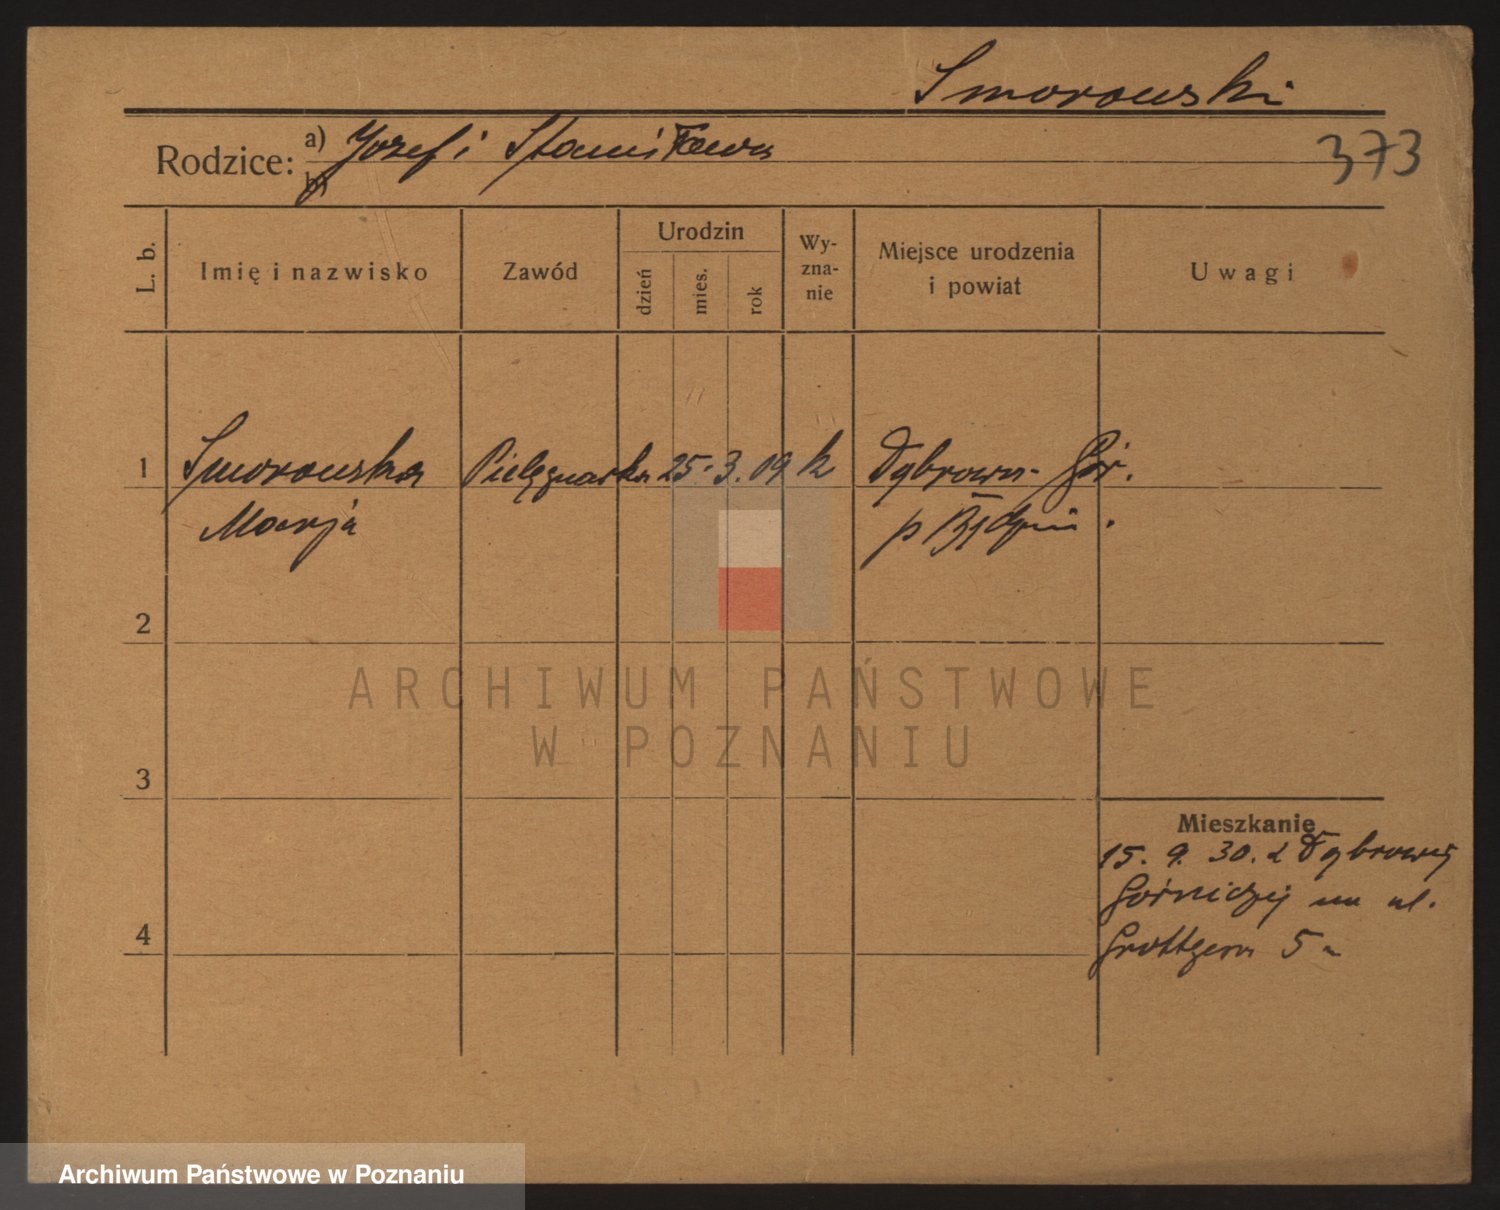 Smorowski
Rodzice: a) Józef i Stanisława
b)
373
L. b.
Imię i nazwisko
Zawód
Urodzin
dzień
mies.
rok
Wy-
zna-
nie
Miejsce urodzenia
i powiat
Uwagi
1 Smorowska Pielęgnarka 25. 3. 09 k Dąbrowa Gór.
Marja p Będzin.
2
ARCHIWUM PAŃSTWOWE
W POZNANIU
3
Mieszkanie
15. 9. 30. z Dąbrowej
Górniczej na ul.
4 Grottgera 5
Archiwum Państwowe w Poznaniu